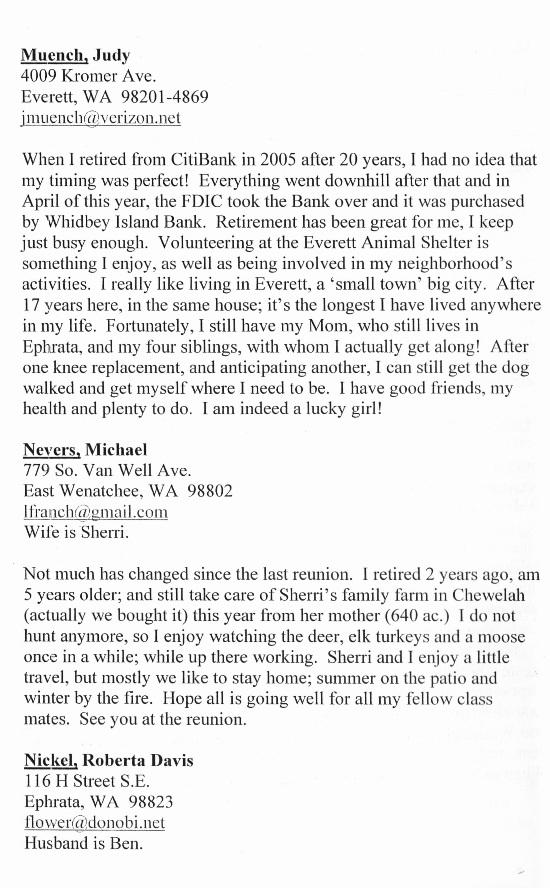 Muench, Judy
4009 Kromer Ave.
Everett, WA  98201-4869
jmuench@verizon.net
When I retired from CitiBank in 2005 after 20 years, I had no idea that
my timing was perfect!  Everything went downhill after that and in
April of this year, the FDIC took the Bank over and it was purchased
by Whidbey Island Bank.  Retirement has been great for me, I keep
just busy enough.  Volunteering at the Everett Animal Shelter is
something I enjoy, as well as being involved in my neighborhood's
activities.  I really like living in Everett, a 'small town' big city.  After
17 years here, in the same house; it's the longest I have lived anywhere
in my life.  Fortunately, I still have my Mom, who still lives in
Ephrata, and my four siblings, with whom I actually get along!  After
one knee replacement, and anticipating another, I can still get the dog
walked and get myself where I need to be.  I have good friends, my
health and plenty to do.  I am indeed a lucky girl!
Nevers, Michael
779 So. Van Well Ave.
East Wenatchee, WA  98802
lfranch@gmail.com
Wife is Sherri.
Not much has changed since the last reunion.  I retired 2 years ago, am
5 years older; and still take care of Sherri's family farm in Chewelah
(actually we bought it) this year from her mother (640 ac.)  I do not
hunt anymore, so I enjoy watching the deer, elk turkeys and a moose
once in a while; while up there working.  Sherri and I enjoy a little
travel, but mostly we like to stay home; summer on the patio and
winter by the fire.  Hope all is going well for all my fellow class
mates.  See you at the reunion.
Nickel, Roberta Davis
116 H Street S.E.
Ephrata, WA  98823
flower@donobi.net
Husband is Ben.